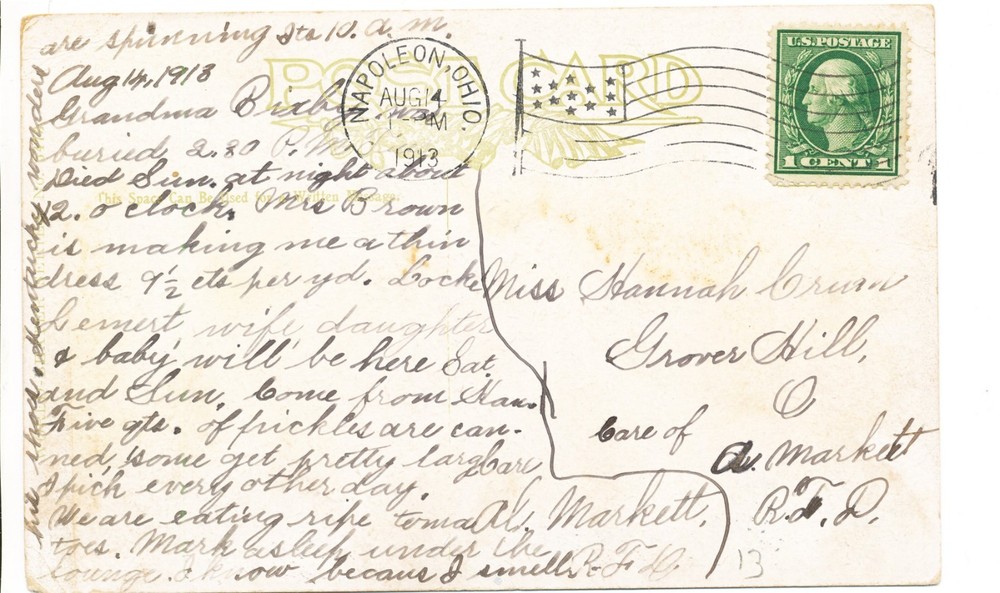 are spinning Its 10. a. m.
Aug 14, 1913
Grandma Bixby was
buried 2.30 P.M.
Died Sun. at night about
12. o clock. Mrs Brown
is making me a thin
dress 9½ cts per yd. Locke
Lemert wife daughter
& baby will be here Sat.
and Sun. Come from Kan.
Five qts. of pickles are can-
ned, some get pretty large
I pick every other day.
We are eating ripe toma
toes. Mark asleep under the
lounge I know becaus I smell
his shoes. Kentucky wonders
POST CARD
This Space Can Be Used for a Written Message.
NAPOLEON, OHIO.
AUG 14
PM
1913
U.S. POSTAGE
1 CENT 1
Miss Hannah Crum
Grover Hill,
O
Care of
A. Markett
R.F.D.
Care
Al. Markett.
R.F.D.
13